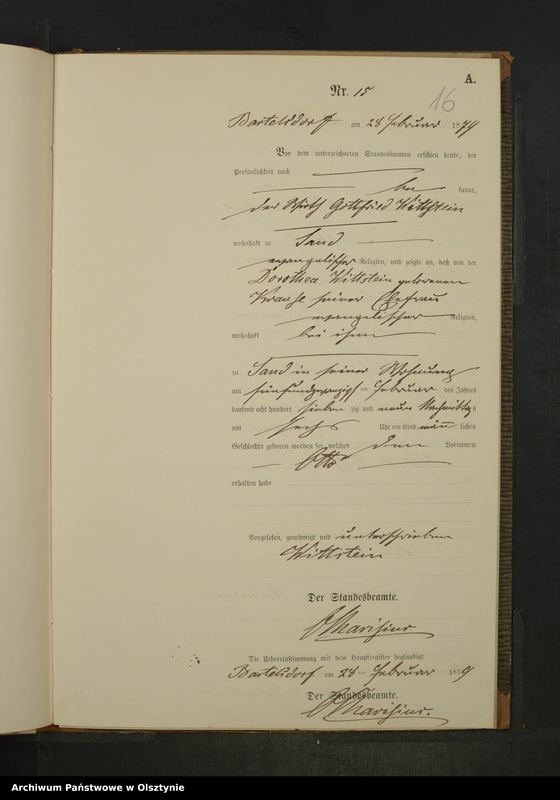 A.
Nr. 15
16
Bartelsdorf am 28 Februar 1879
Vor dem unterzeichneten Standesbeamten erschien heute, der
Persönlichkeit nach
be kannt,
der Wirth Gottfried Wittstein
wohnhaft zu Sand
evangelischer Religion, und zeigte an, daß von der
Dorothea Wittstein geborenen
Krause seiner Ehefrau
evangelischer Religion,
wohnhaft bei ihm
zu Sand in seiner Wohnung
am fünfundzwanzigsten Februar des Jahres
tausend acht hundert sieben zig und neun Nachmittags
um sechs Uhr ein Kind männ lichen
Geschlechts geboren worden sei, welches den Vornamen
Otto
erhalten habe
Vorgelesen, genehmigt und unterschrieben
Wittstein
Der Standesbeamte.
Die Uebereinstimmung mit dem Hauptregister beglaubigt
Bartelsdorf am 28 Februar 1879
Der Standesbeamte.
Archiwum Państwowe w Olsztynie